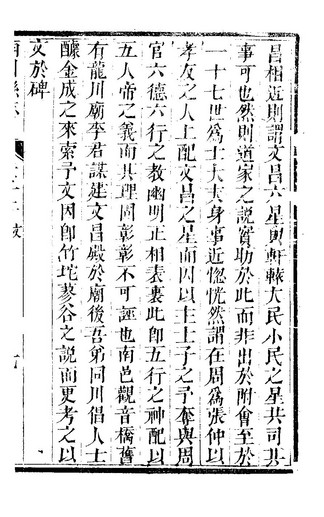 昌相近則謂文昌六星與軒轅大民小民之星共司其
事可也然則道家之說實助於此而非出於附會至於
一十七世為士大夫身事近惚恍然謂在周為張仲以
孝友之人上配文昌之星而因以主士子之予奪與周
官六德六行之教幽明正相表裏此卽五行之神配以
五人帝之義而其理固彰彰不可誣也南邑觀音橋舊
有龍川廟李君謀建文昌殿於廟後吾弟同川倡人士
醵金成之來索予文因卽竹垞蓼谷之說而更考之以
文於碑